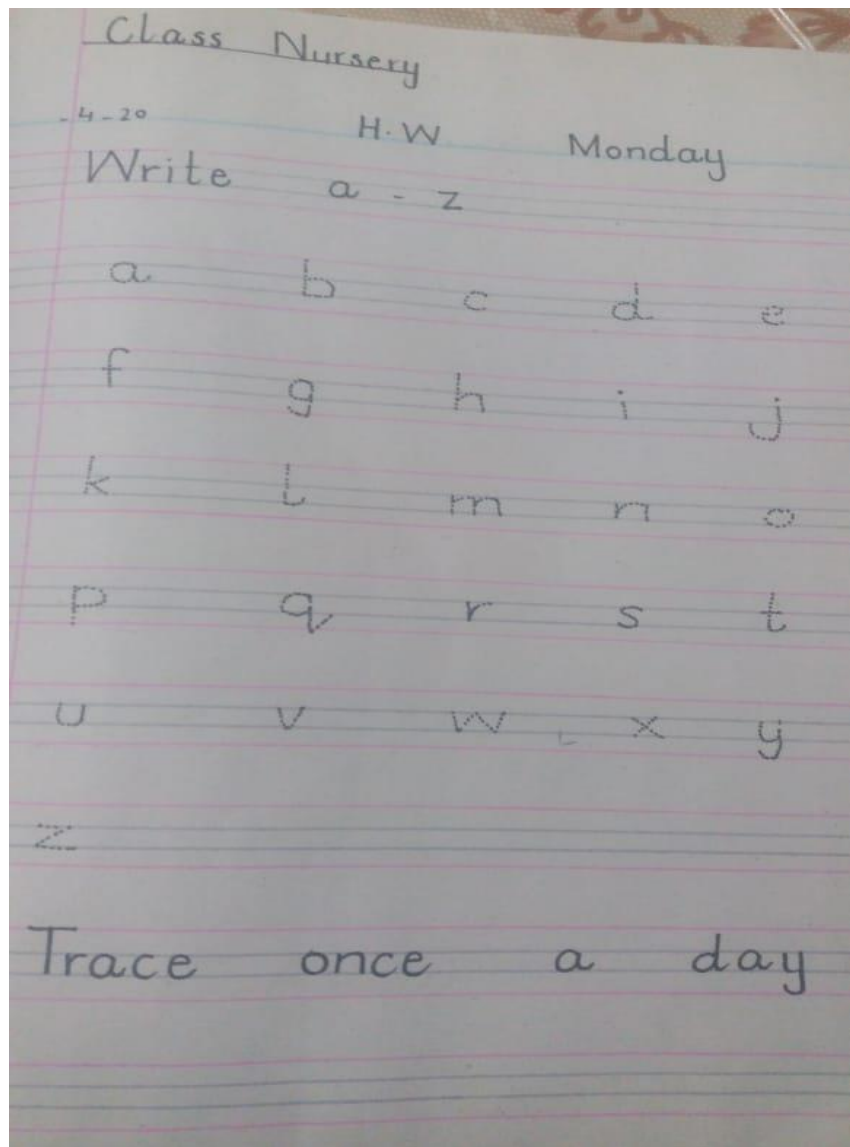 Class Nursery
-4-20 H.W Monday
Write a - z
a b c d e
f g h i j
k l m n o
p q r s t
u v w x y
z
Trace once a day